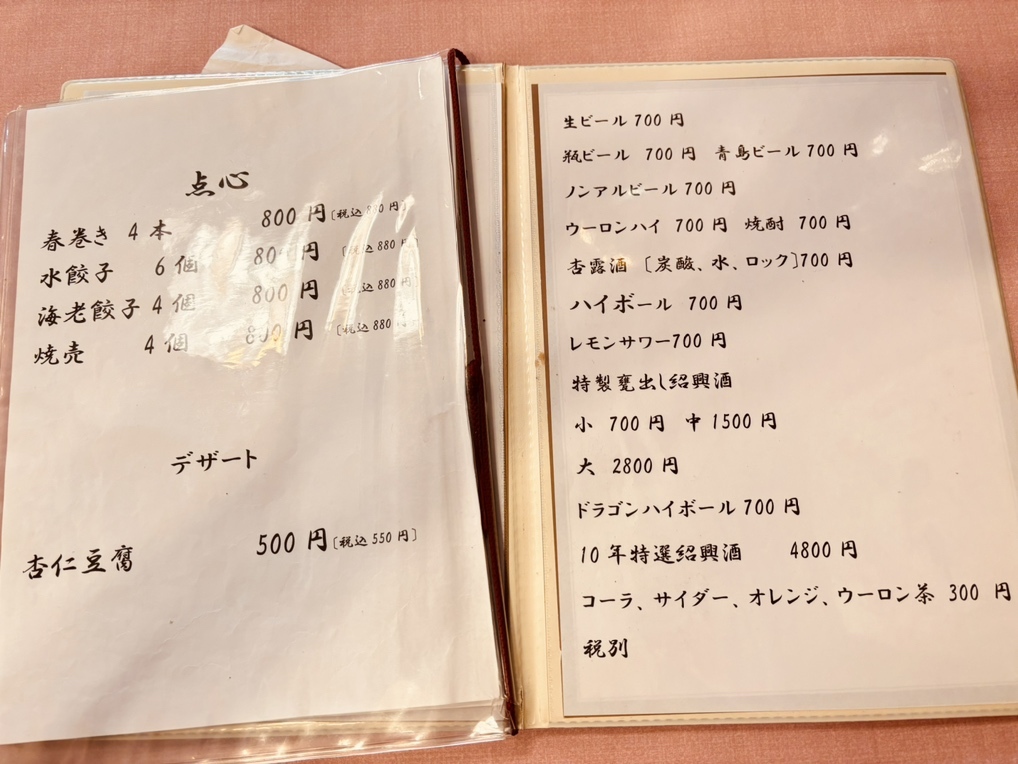 点心
春巻き 4本 800円〔税込880円〕
水餃子 6個 800円〔税込880円〕
海老餃子 4個 800円〔税込880円〕
焼売 4個 800円〔税込880円〕
デザート
杏仁豆腐 500円〔税込550円〕
生ビール 700円
瓶ビール 700円 青島ビール 700円
ノンアルビール 700円
ウーロンハイ 700円 焼酎 700円
杏露酒〔炭酸、水、ロック〕700円
ハイボール 700円
レモンサワー700円
特製甕出し紹興酒
小 700円 中 1500円
大 2800円
ドラゴンハイボール 700円
10年特選紹興酒 4800円
コーラ、サイダー、オレンジ、ウーロン茶 300円
税別